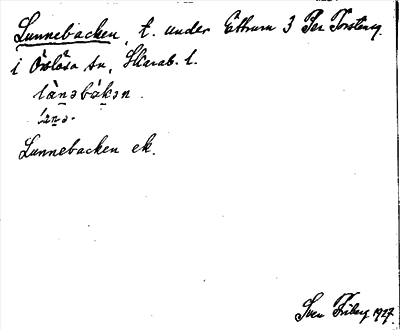 Lunnebacken, t. under Ettrum 3 Per Torsteng.
i Öslösa sn, Skarab. l.
lùnəbàkən.
lùnə-
Lunnebacken ek.
Sven Friberg 1927.